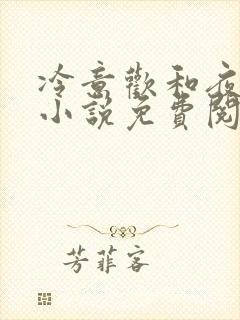 冷意歡和夜
小說免費閱
芳菲客